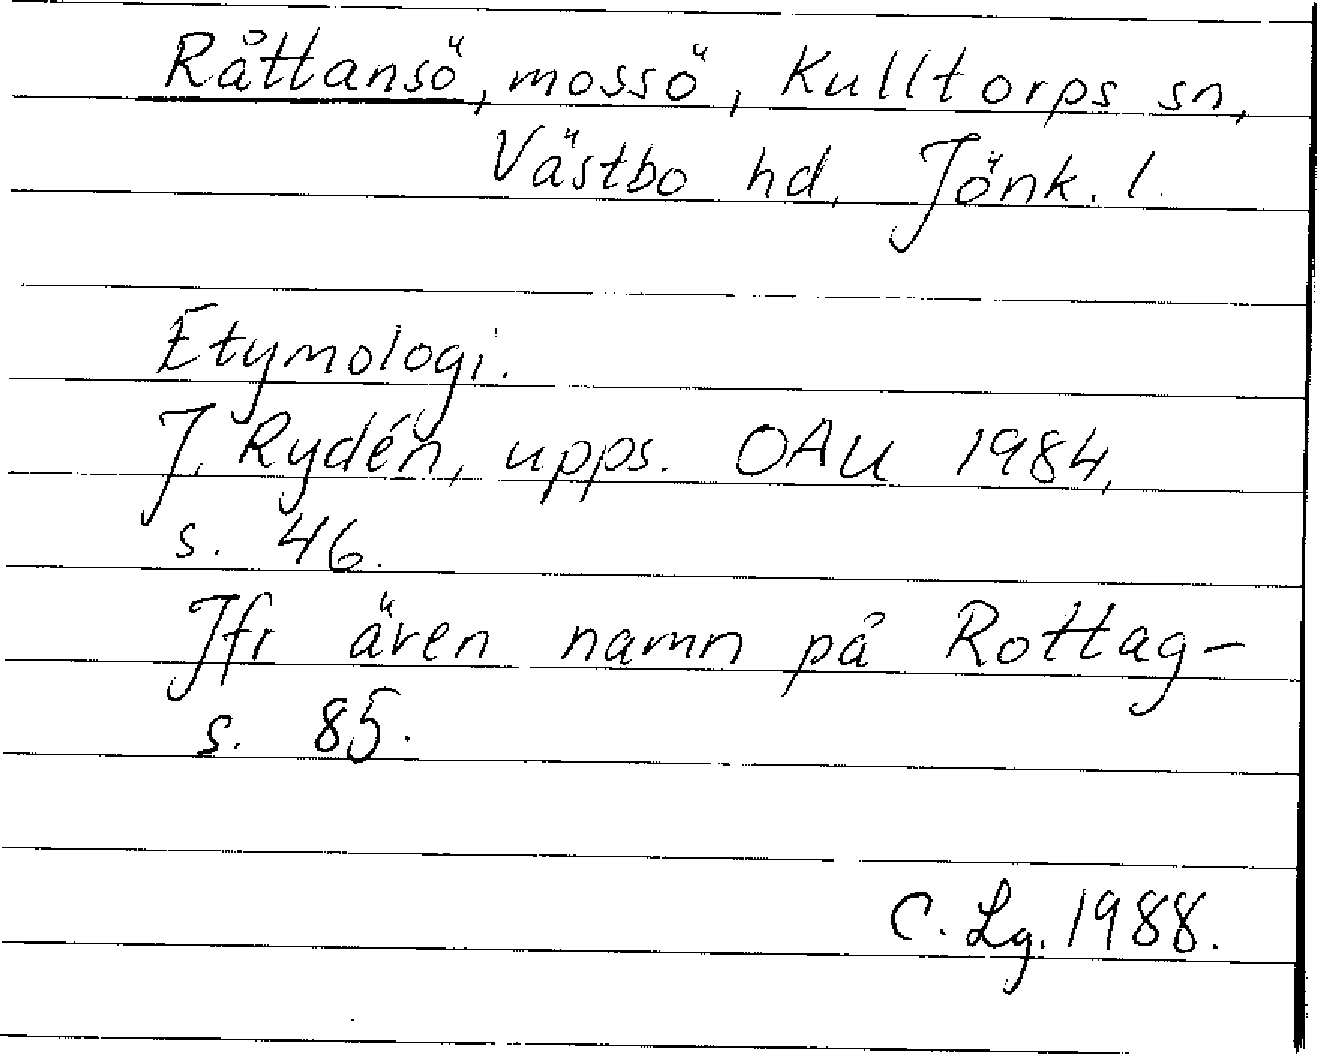 Råttansö, mossö, Kulltorps sn,
Västbo hd, Jönk. l.
Etymologi.
J. Rydén, upps. OAU 1984,
s. 46.
Jfr även namn på Rottag-
s. 85.
C. Lg. 1988.